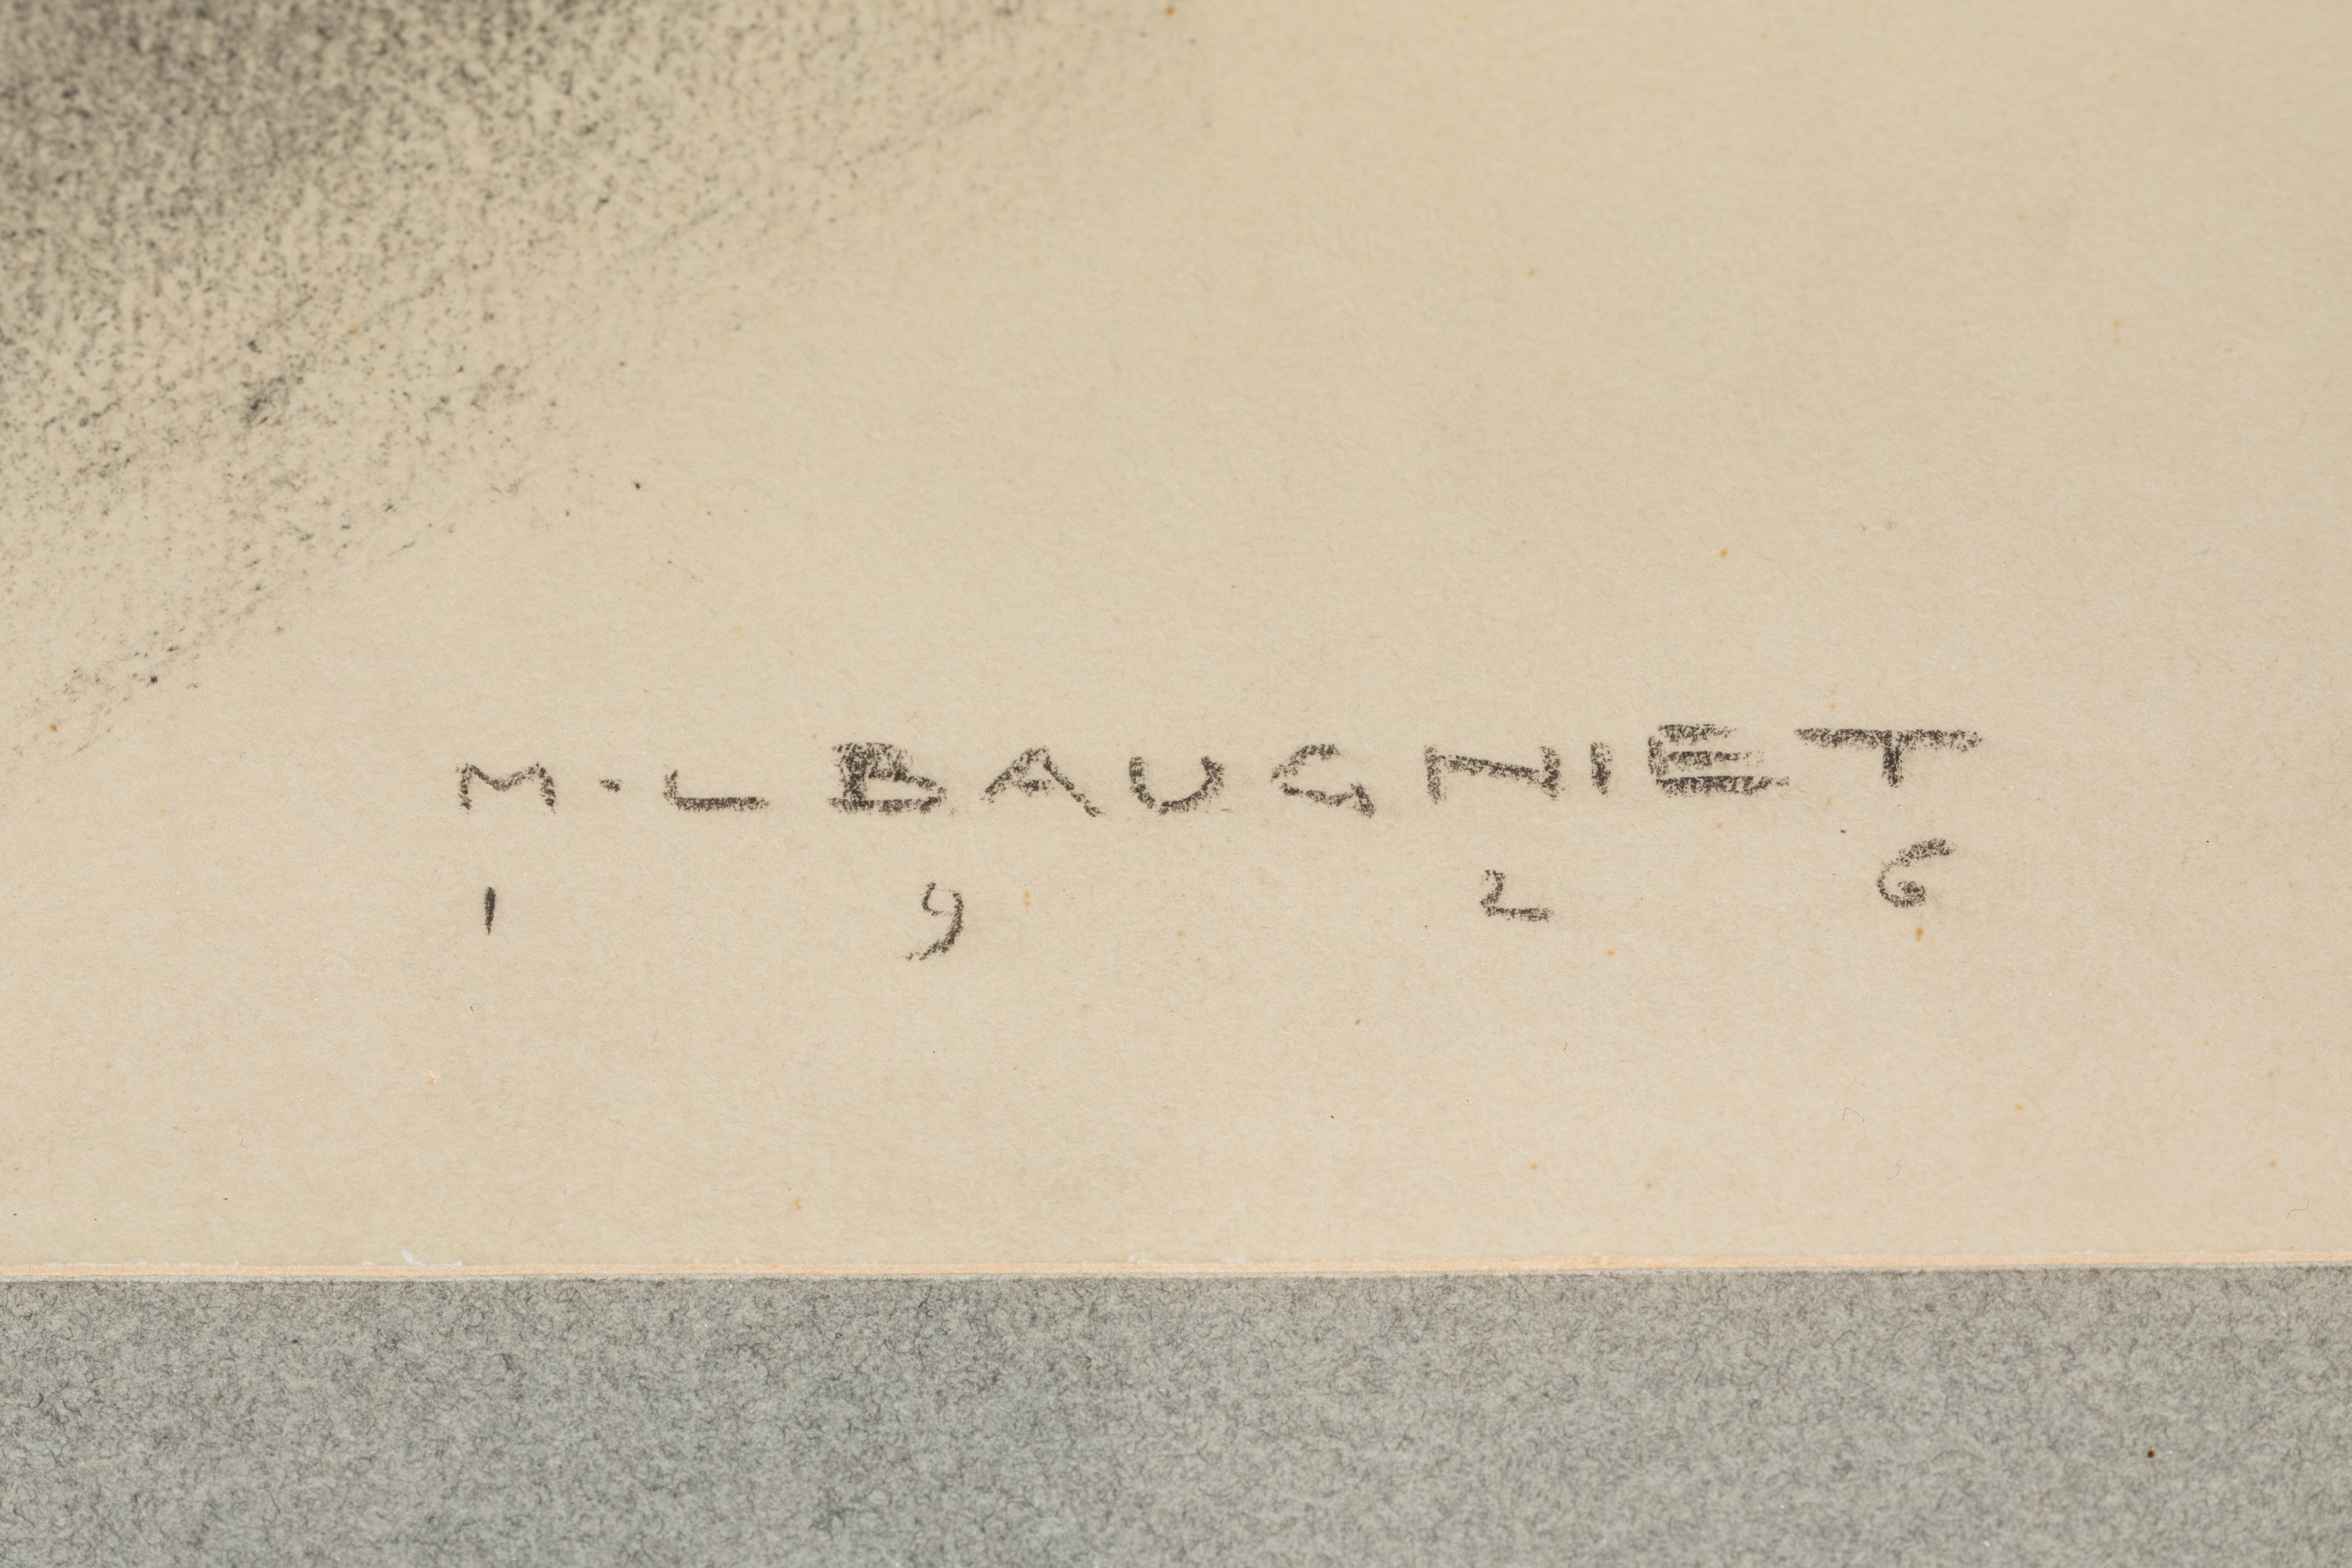 M-L BAUGNIET
1926